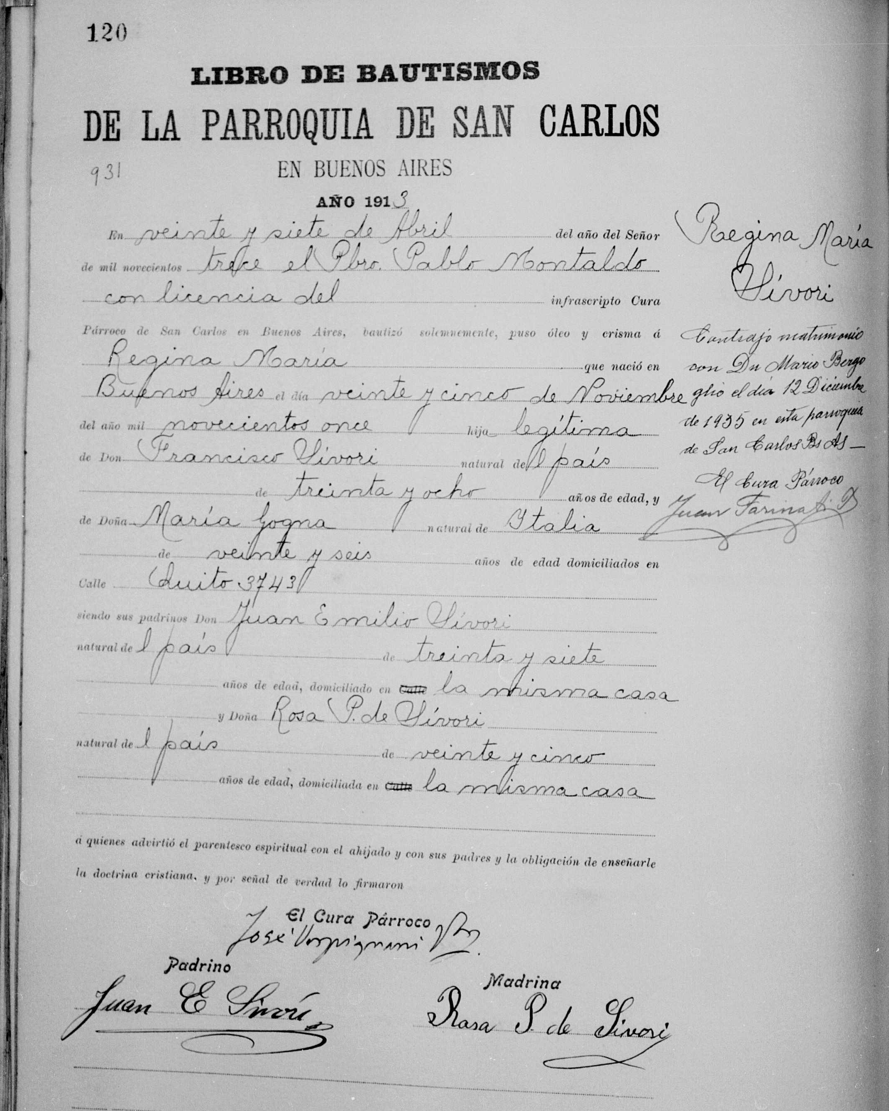 120
LIBRO DE BAUTISMOS
DE LA PARROQUIA DE SAN CARLOS
931
EN BUENOS AIRES
AÑO 1913
En veinte y siete de Abril del año del Señor
de mil novecientos trece el Pbro. Pablo Montaldo
con licencia del infrascripto Cura
Párroco de San Carlos en Buenos Aires, bautizó solemnemente, puso óleo y crisma á
Regina María que nació en
Buenos Aires el día veinte y cinco de Noviembre
del año mil novecientos once hija legítima
de Don Francisco Sívori natural del país
de treinta y ocho años de edad, y
de Doña María Gogna natural de Italia
de veinte y seis años de edad domiciliados en
Calle Quito 3743
siendo sus padrinos Don Juan Emilio Sívori
natural del país de treinta y siete
años de edad, domiciliado en Calle la misma casa
y Doña Rosa P. de Sívori
natural del país de veinte y cinco
años de edad, domiciliada en Calle la misma casa
á quienes advirtió el parentesco espiritual con el ahijado y con sus padres y la obligación de enseñarle
la doctrina cristiana, y por señal de verdad lo firmaron
El Cura Párroco
José
Padrino
Juan E Sívori
Madrina
Rosa P. de Sívori
Regina María
Sívori
Contrajo matrimonio
con Dn Mario Bergo
glio el día 12 Diciembre
de 1935 en esta parroquia
de San Carlos Bs As
El Cura Párroco
Juan Farina